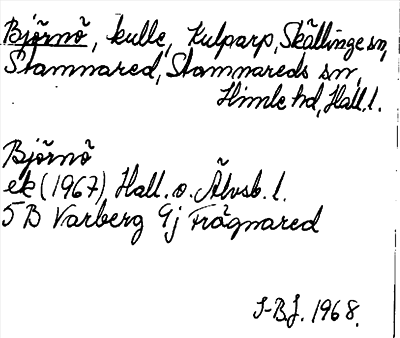 Björnö, kulle, Kulparp, Skällinge sn,
Stamnared, Stamnareds sn,
Himle hd, Hall. l.
Björnö
ek (1967) Hall. o. Älvsb. l.
5B Varberg 9j Frögnared
S-B.J. 1968.